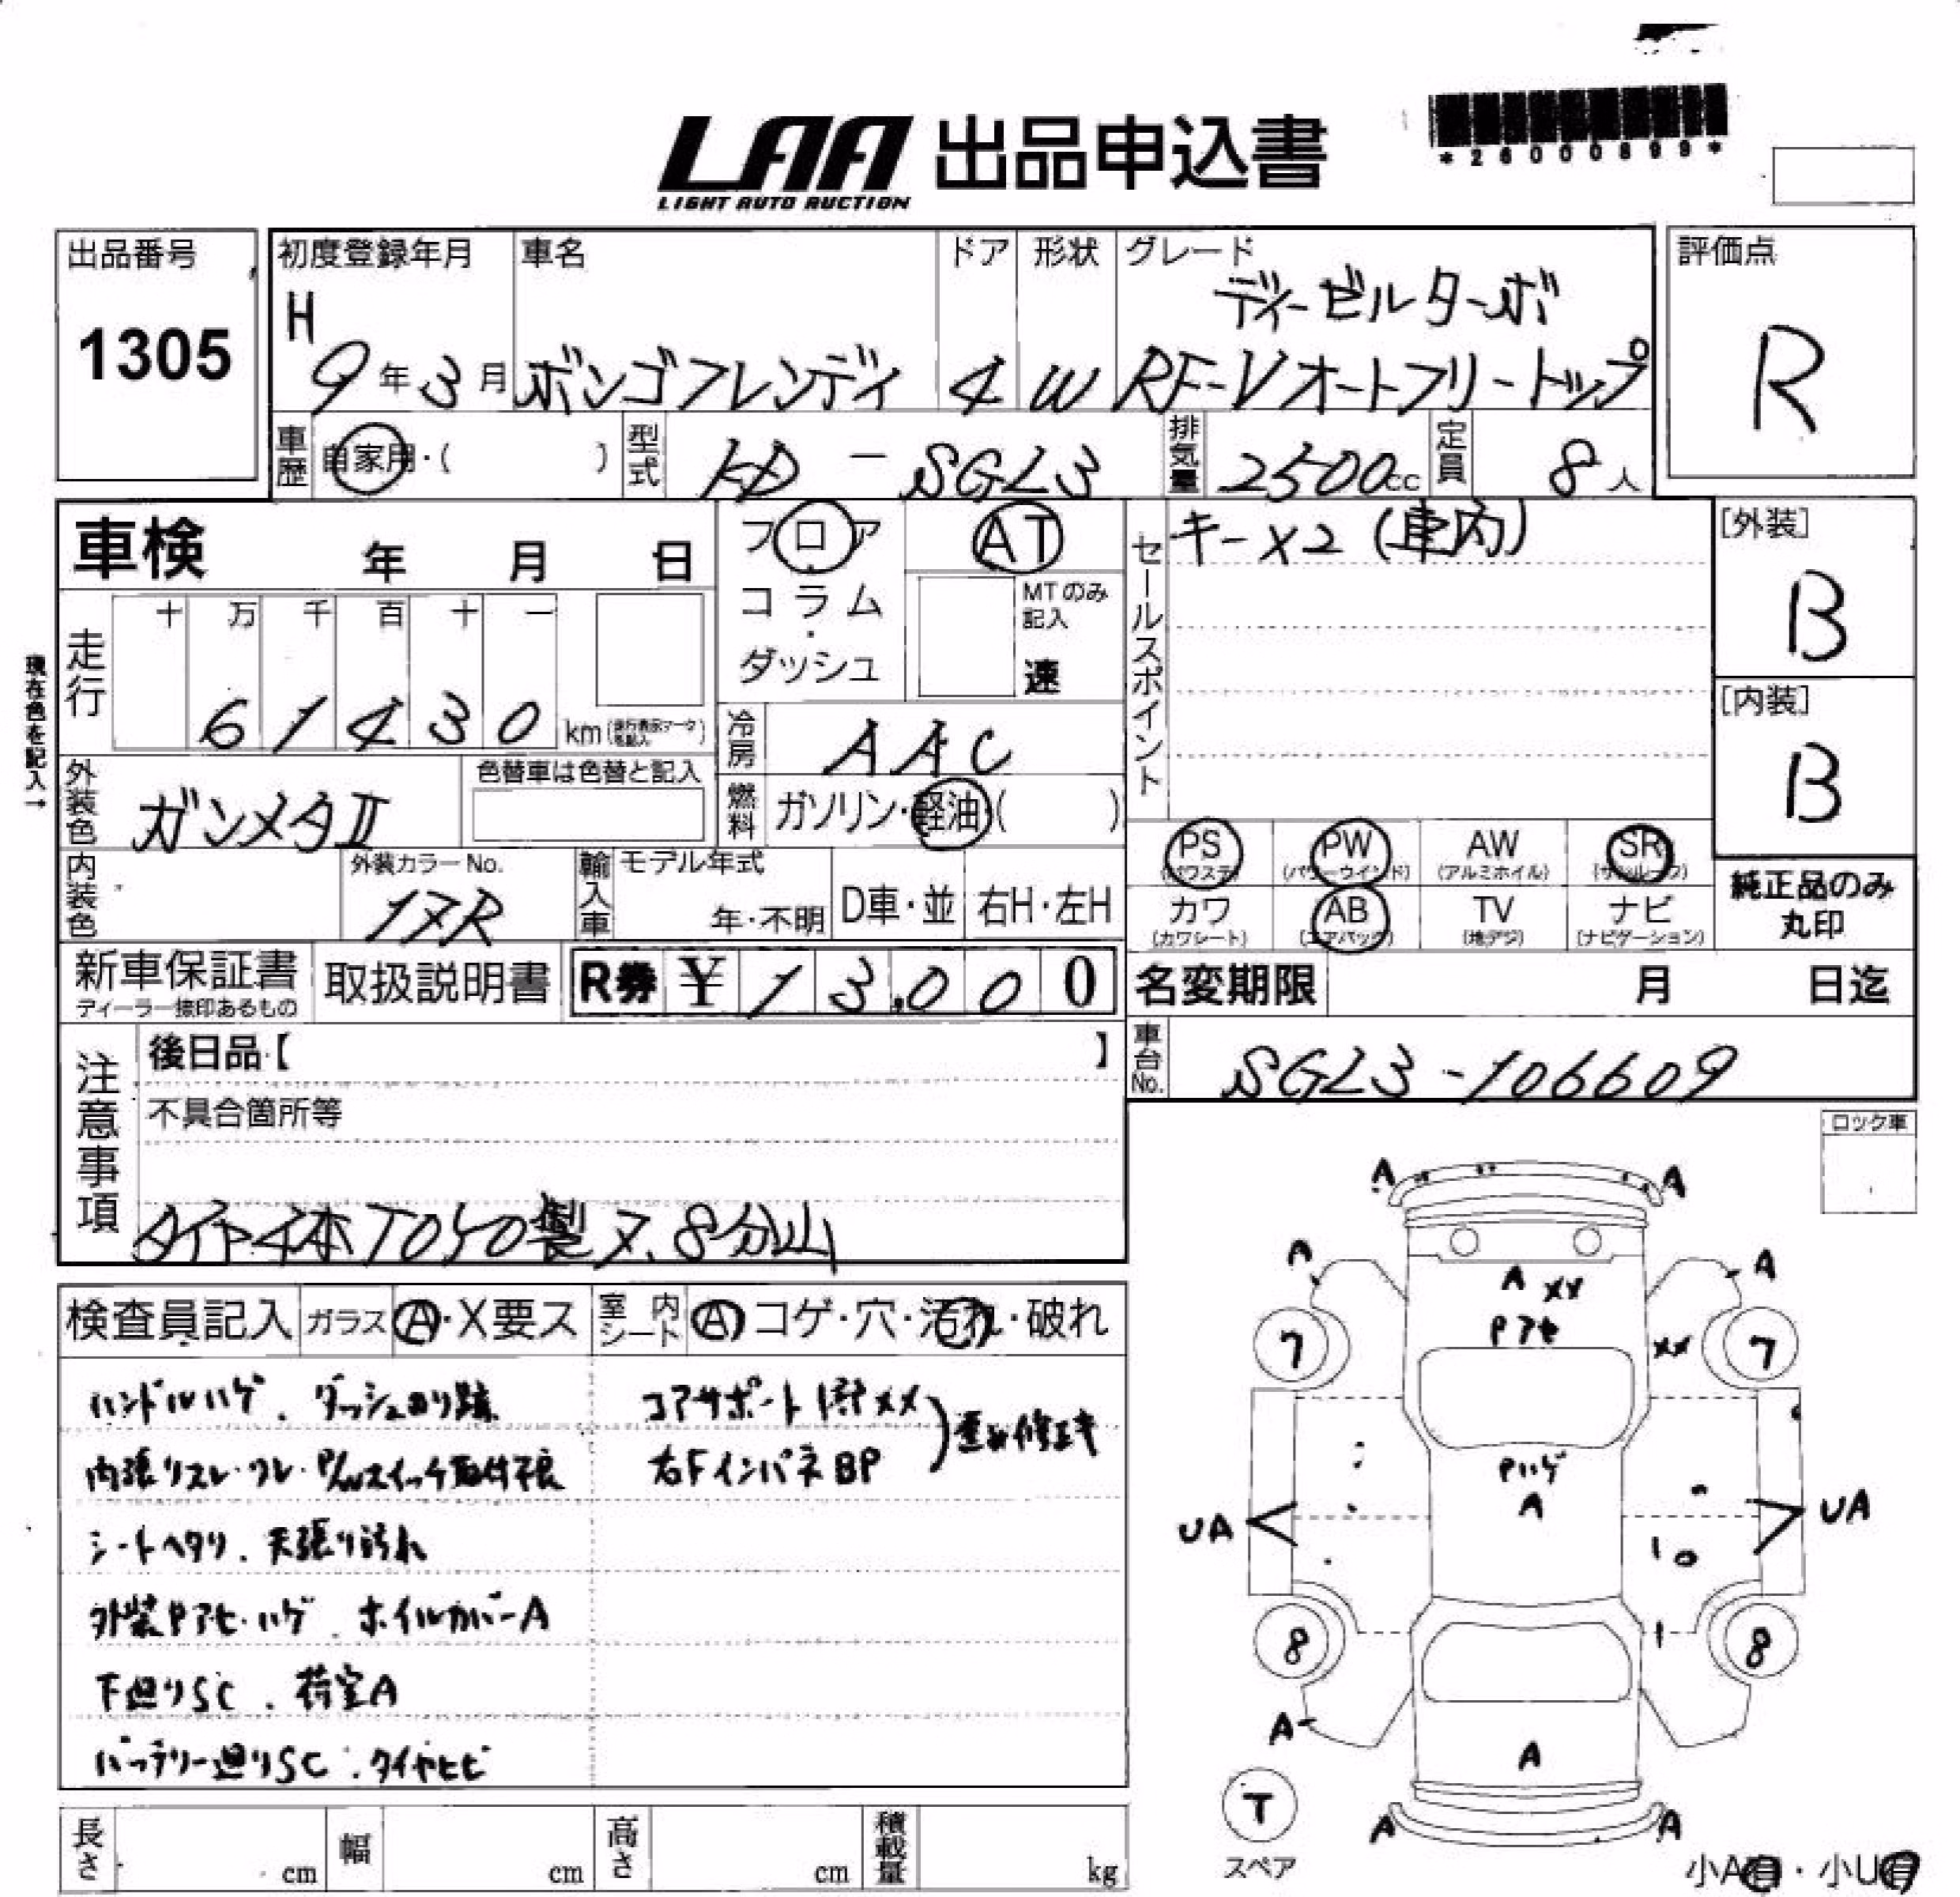 LAA 出品申込書
LIGHT AUTO AUCTION
*26000899*
出品番号
1305
初度登録年月
H
9年3月
車名
ボンゴフレンディ
ドア
4
形状
W
グレード
ディーゼルターボ
RF-V オートフリートップ
評価点
R
車歴
自家用・( )
型式
KD - SGL3
排気量
2500cc
定員
8人
車検 年 月 日
フロア
コラム
・
ダッシュ
AT
MTのみ
記入
速
セールスポイント
キー×2 (車内)
[外装]
B
[内装]
B
現在色を記入→
走行
十 万 千 百 十 一
6 1 4 3 0 km
冷房
AAC
外装色
ガンメタⅡ
色替車は色替と記入
燃料
ガソリン・軽油・( )
PS
(パワステ)
PW
(パワーウインド)
AW
(アルミホイル)
SR
(サンルーフ)
カワ
(カワシート)
AB
(エアバック)
TV
(地デジ)
ナビ
(ナビゲーション)
純正品のみ
丸印
内装色
外装カラーNo.
17R
輸入車
モデル年式
年・不明
D車・並
右H・左H
新車保証書
ディーラー捺印あるもの
取扱説明書
R券 ¥ 13,000
名変期限 月 日迄
注意事項
後日品【 】
不具合箇所等
タイヤ4本TOYO製 7、8分山
車台No.
SGL3-106609
ロック車
検査員記入
ガラス A・X要ス
室内シート A コゲ・穴・汚れ・破れ
ハンドルハゲ、ダッシュのり跡
内張りスレ・ワレ・P/Wスイッチ取付不良
シートヘタリ、天張り汚れ
外装Pアセ・ハゲ、ホイルカバーA
下廻りSC、荷室A
バッテリー廻りSC、タイヤヒビ
コアサポート XX
右FインパネBP
歪み修正キ
A A
A A
A XX
Pアセ
XX
7 7
Pハゲ
A
UA UA
8 8
A
A
A A
T
スペア
小A有・小U有
長さ cm
幅 cm
高さ cm
積載量 kg